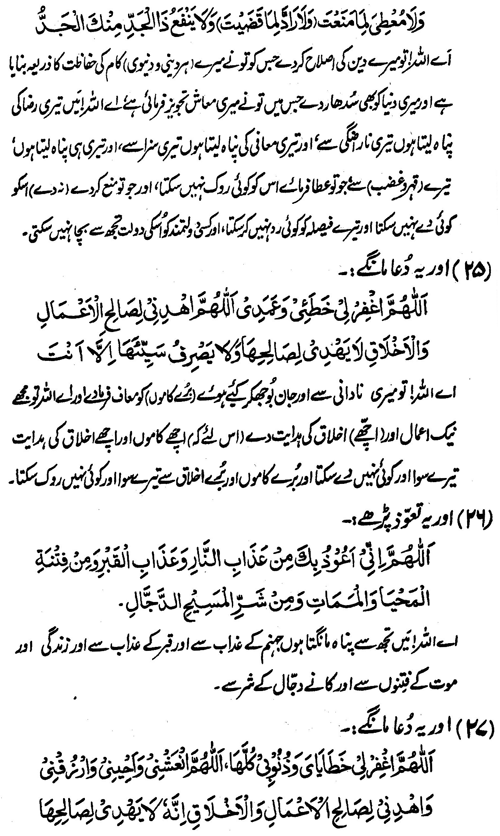 وَلَا مُعْطِیَ لِمَا مَنَعْتَ (وَلَا رَآدَّ لِمَا قَضَیْتَ) وَلَا یَنْفَعُ ذَا الْجَدِّ مِنْكَ الْجَدُّ
اے اللہ! تو میرے دین کی اصلاح کر دے جس کو تو نے میرے (ہر دینی و دنیوی) کام کی حفاظت کا ذریعہ بنایا
ہے اور میری دنیا کو بھی سدھار دے جس میں تو نے میری معاش تجویز فرمائی ہے، اے اللہ! میں تیری رضا کی
پناہ لیتا ہوں تیری ناراضگی سے، اور تیری معافی کی پناہ لیتا ہوں تیری سزا سے، اور تیری ہی پناہ لیتا ہوں،
تیرے (قہر و غضب) سے، جو تو عطا فرمائے اس کو کوئی روک نہیں سکتا، اور جو تو منع کر دے (نہ دے) اسکو
کوئی دے نہیں سکتا اور تیرے فیصلہ کو کوئی رد نہیں کر سکتا، اور کسی دولتمند کو اسکی دولت تجھ سے بچا نہیں سکتی۔
(۲۵) اور یہ دُعا مانگے:۔
اَللّٰهُمَّ اغْفِرْ لِیْ خَطَئِیْ وَعَمَدِیْ اَللّٰهُمَّ اهْدِنِیْ لِصَالِحِ الْاَعْمَالِ
وَالْاَخْلَاقِ لَا یَهْدِیْ لِصَالِحِهَا وَلَا یَصْرِفُ سَیِّئَهَا اِلَّا اَنْتَ
اے اللہ! تو میری نادانی سے اور جان بُوجھکر کیئے ہوئے (بُرے کاموں) کو معاف فرما دے اور اے اللہ تو مجھے
نیک اعمال اور (اچھے) اخلاق کی ہدایت دے (اس لئے کہ) اچھے کاموں اور اچھے اخلاق کی ہدایت
تیرے سوا اور کوئی نہیں دے سکتا اور بُرے کاموں اور بُرے اخلاق سے تیرے سوا اور کوئی نہیں روک سکتا۔
(۲۶) اور یہ تعوّذ پڑھے:۔
اَللّٰهُمَّ اِنِّیْ اَعُوْذُ بِكَ مِنْ عَذَابِ النَّارِ وَعَذَابِ الْقَبْرِ وَمِنْ فِتْنَةِ
الْمَحْیَا وَالْمَمَاتِ وَمِنْ شَرِّ الْمَسِیْحِ الدَّجَّالِ۔
اے اللہ! میں تجھ سے پناہ مانگتا ہوں جہنم کے عذاب سے اور قبر کے عذاب سے اور زندگی اور
موت کے فتنوں سے اور کانے دجّال کے شر سے۔
(۲۷) اور یہ دُعا مانگے:۔
اَللّٰهُمَّ اغْفِرْ لِیْ خَطَایَایَ وَذُنُوْبِیْ كُلَّهَا، اَللّٰهُمَّ انْعَشْنِیْ وَاَحْیِنِیْ وَارْزُقْنِیْ
وَاهْدِنِیْ لِصَالِحِ الْاَعْمَالِ وَالْاَخْلَاقِ اِنَّهٗ لَا یَهْدِیْ لِصَالِحِهَا